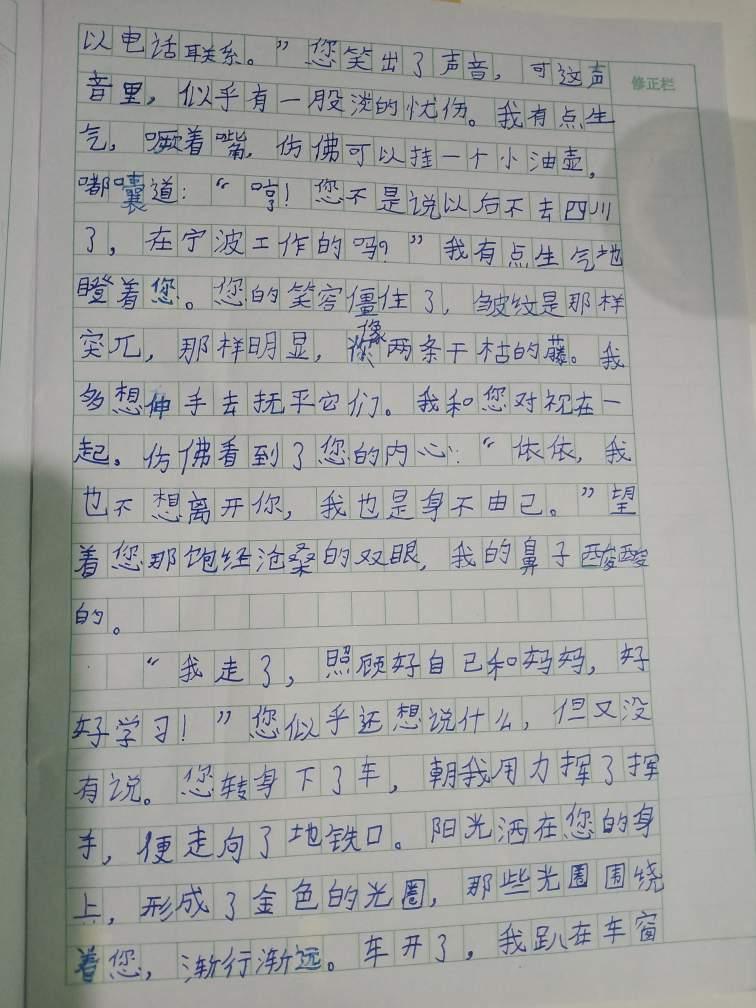 修正栏
以电话联系。”您笑出了声音，可这声
音里，似乎有一股淡的忧伤。我有点生
气，噘着嘴，仿佛可以挂一个小油壶，
嘟囔道：“哼！您不是说以后不去四川
了，在宁波工作的吗？”我有点生气地
瞪着您。您的笑容僵住了，皱纹是那样
突兀，那样明显，像两条干枯的藤。我
多想伸手去抚平它们。我和您对视在一
起。仿佛看到了您的内心：“依依，我
也不想离开你，我也是身不由己。”望
着您那饱经沧桑的双眼，我的鼻子酸酸
的。
“我走了，照顾好自己和妈妈，好
好学习！”您似乎还想说什么，但又没
有说。您转身下了车，朝我用力挥了挥
手，便走向了地铁口。阳光洒在您的身
上，形成了金色的光圈，那些光圈围绕
着您，渐行渐远。车开了，我趴在车窗